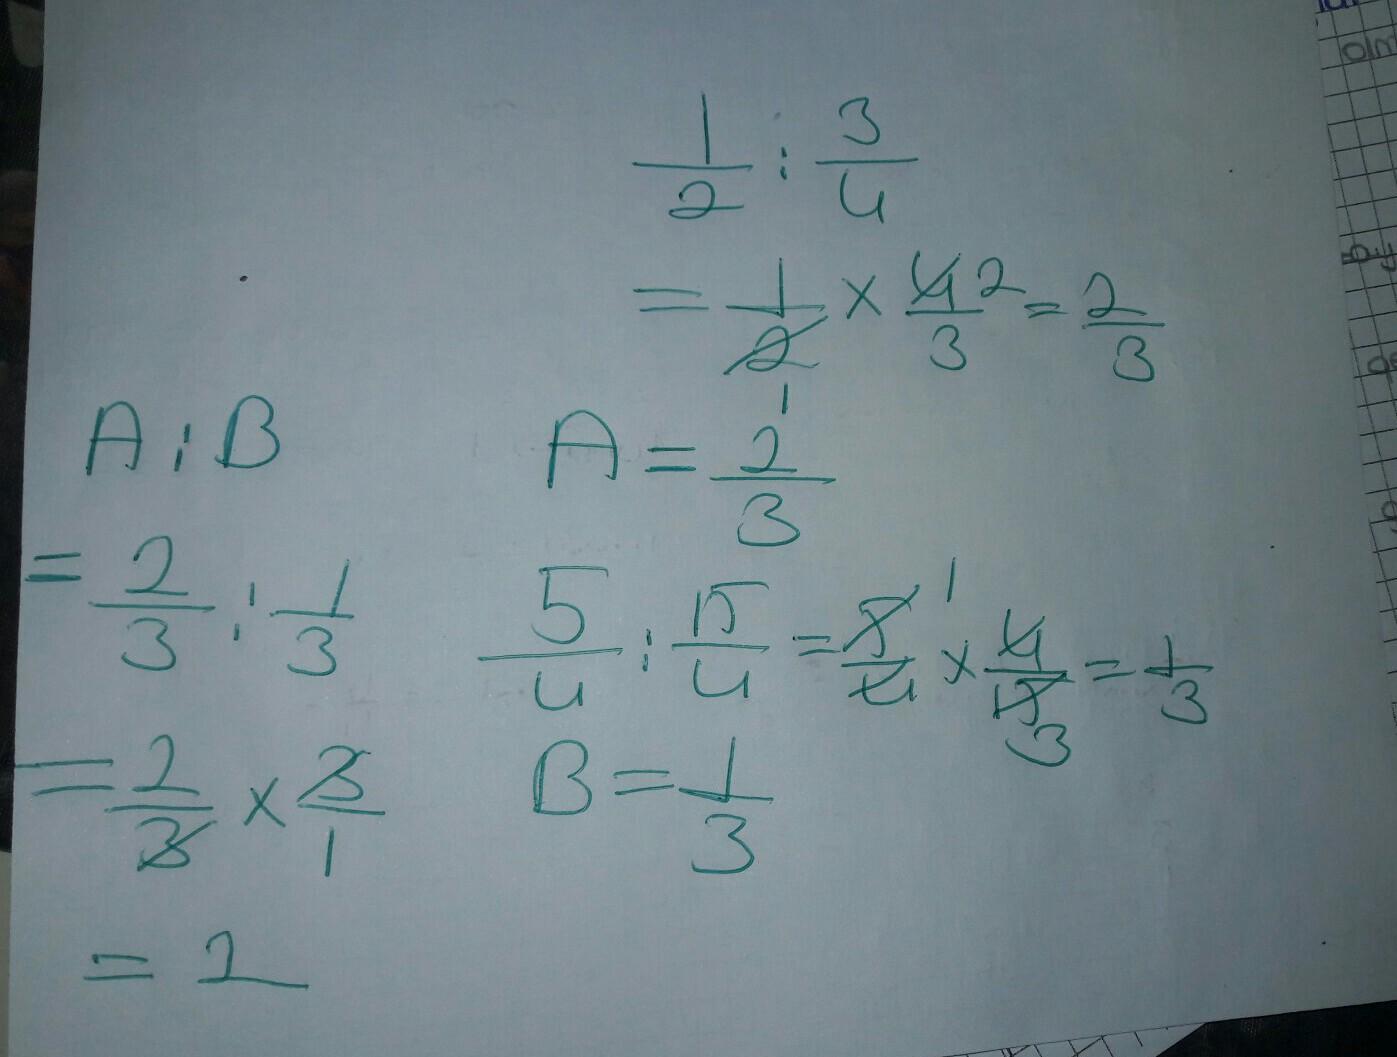 1/2 : 3/4
= 1/2 1 × 4/3 2 = 2/3
A = 2/3
5/4 : 15/4 = 5/4 1 × 4/15 3 = 1/3
B = 1/3
A : B
= 2/3 : 1/3
= 2/3 × 3/1
= 2